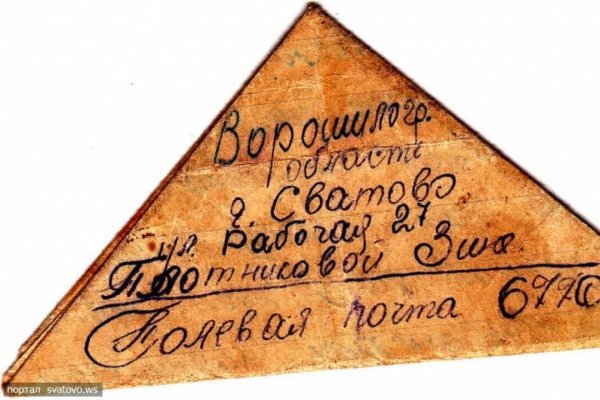 Ворошилогр.
области
г. Сватово
ул. Рабочая 27
Плотниковой Зине.
Полевая почта 6770
портал svatovo.ws